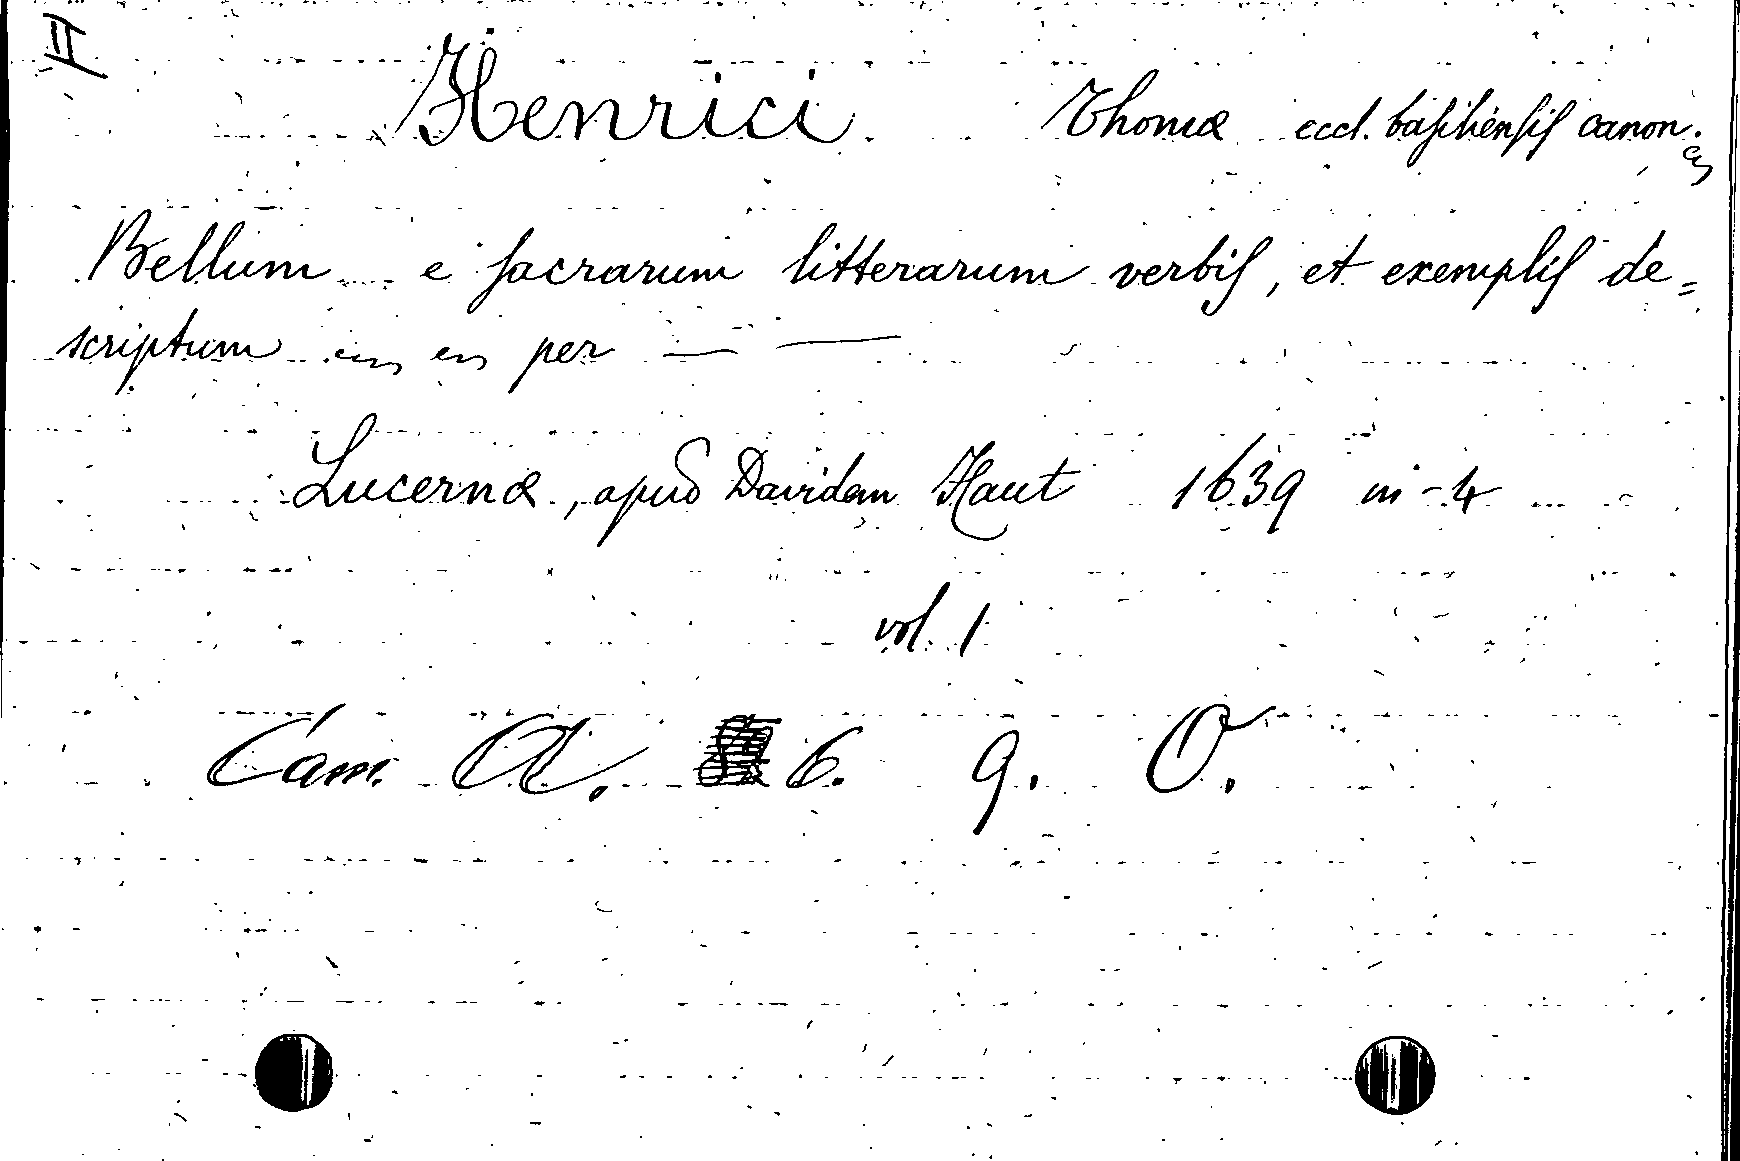 H
Henrici Thomæ eccl. basiliensis canon.
Bellum e sacrarum litterarum verbis, et exemplis de=
scriptum per — —
Lucernæ, apud Davidem Haut 1639 in-4
vol. 1
Cam. A. 6. 9. O.